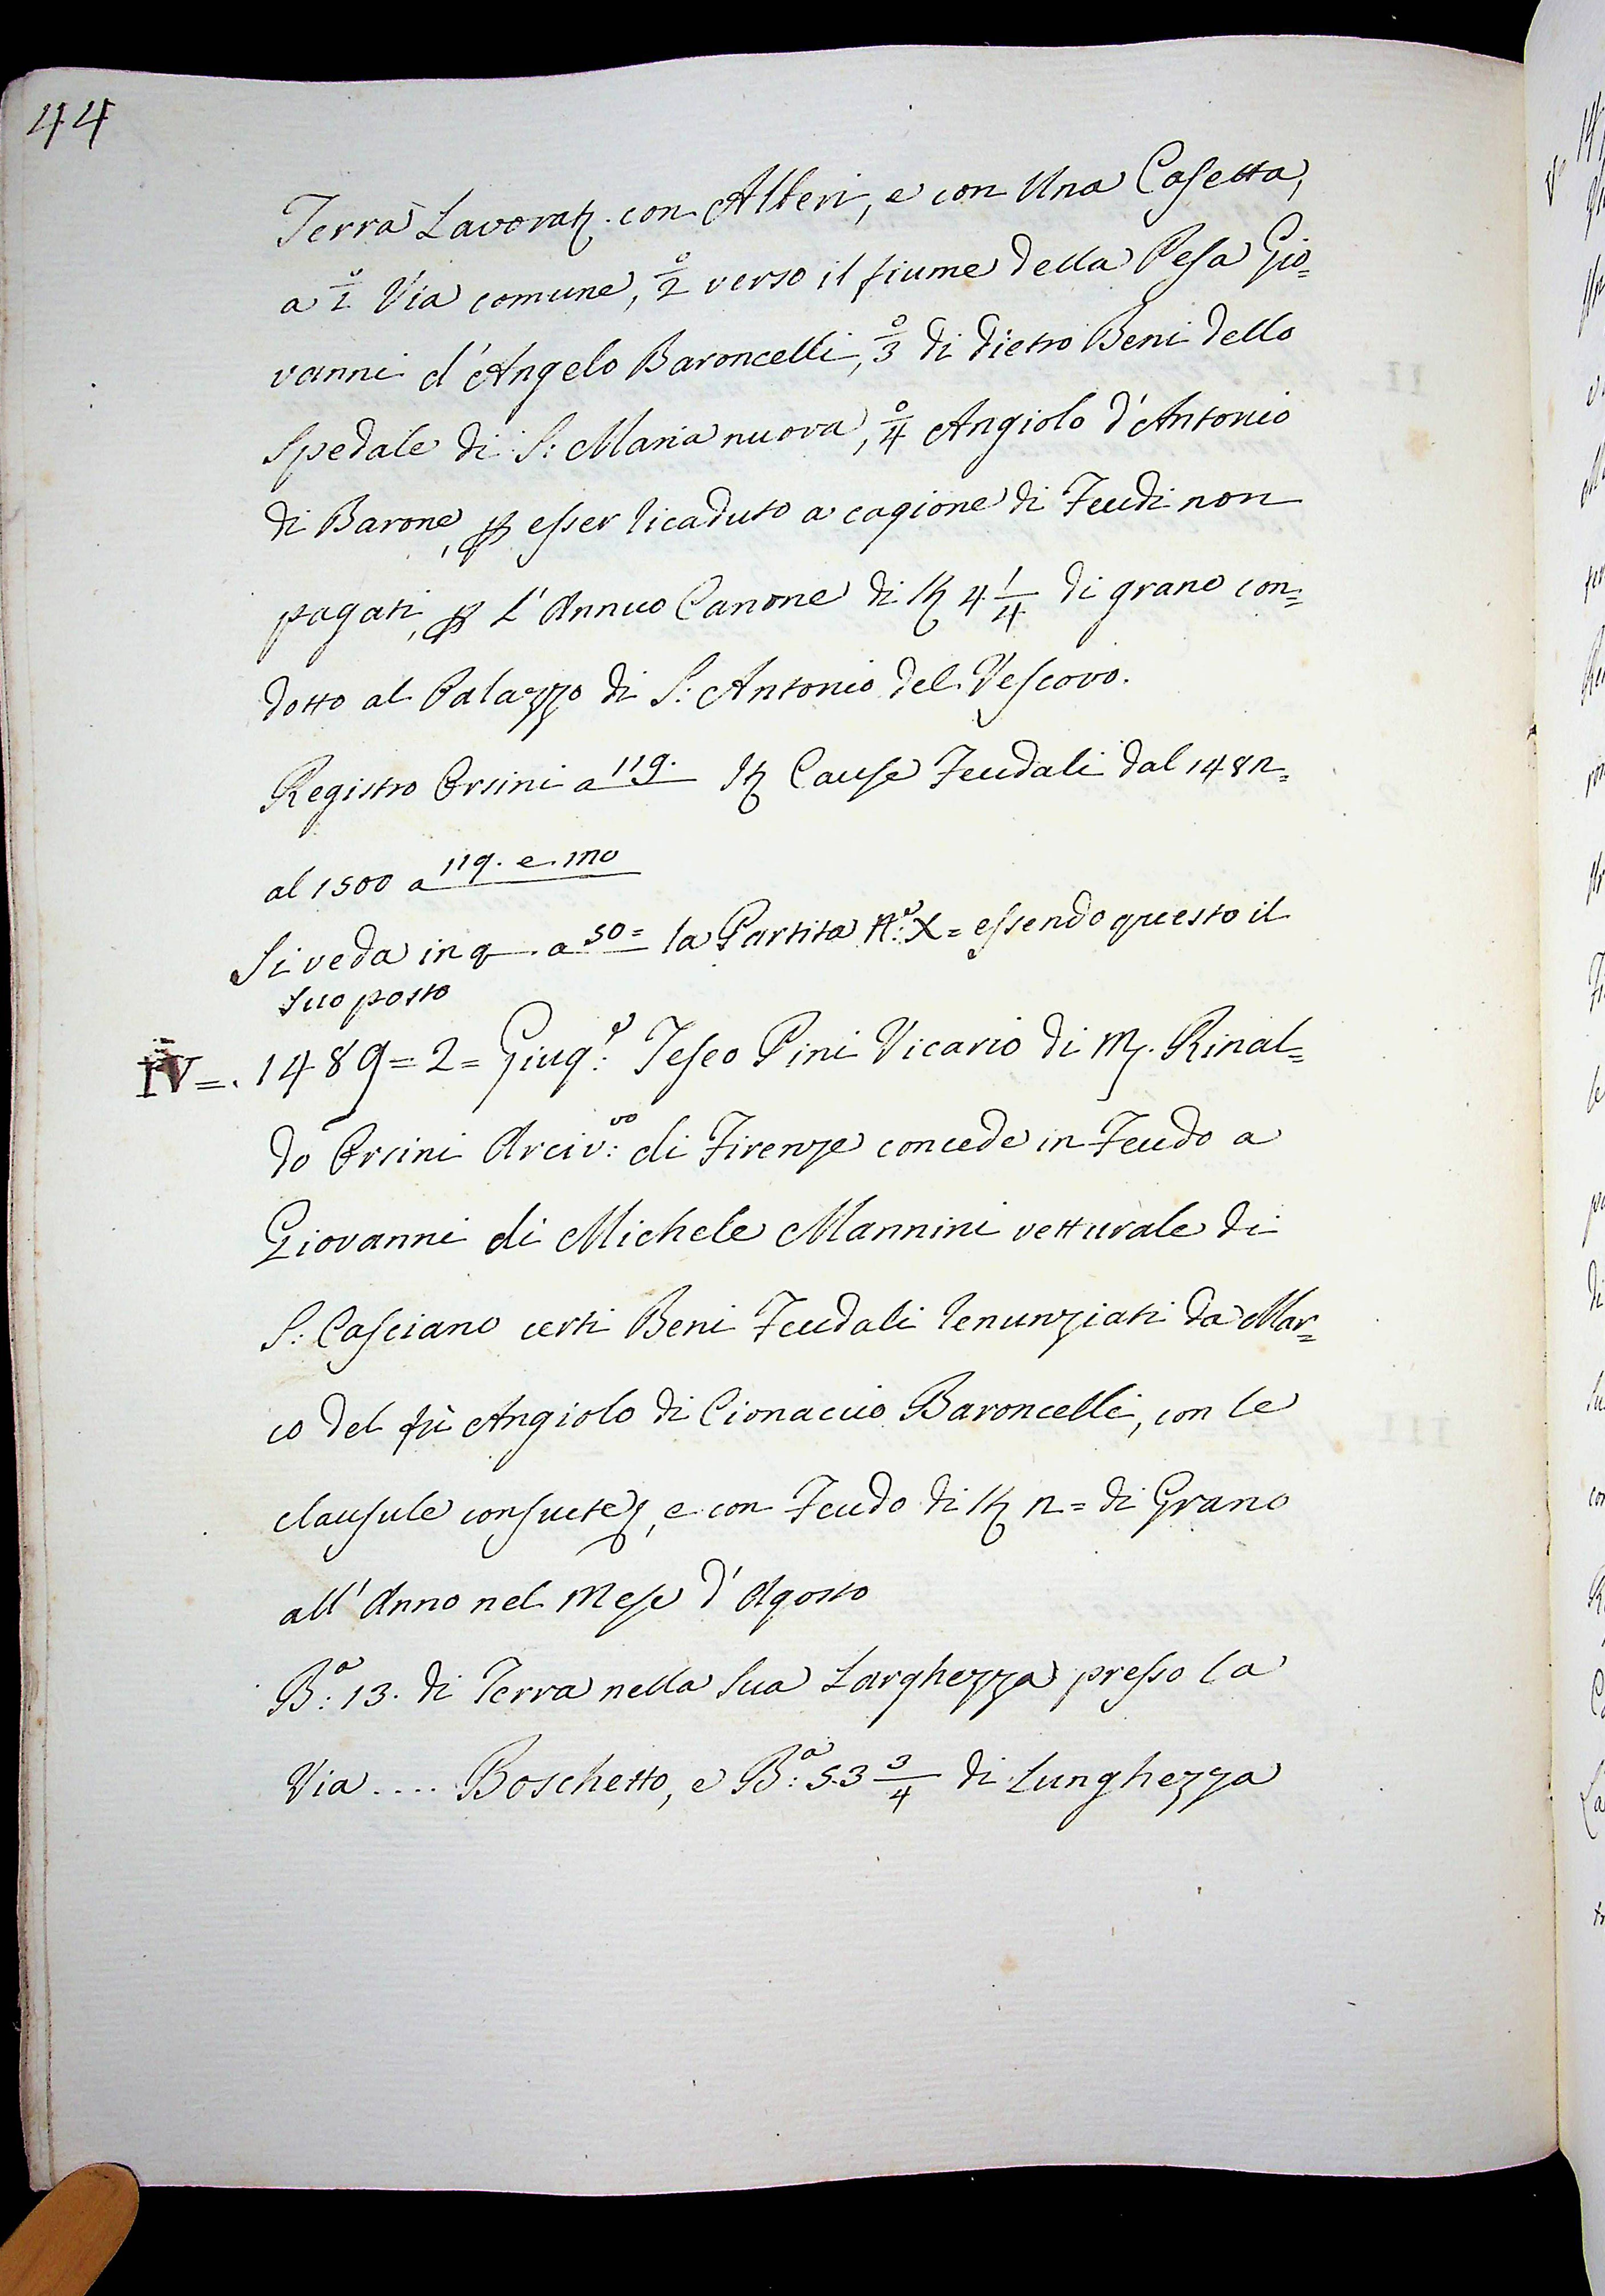 44
Terra Lavorat. con Alberi, e con Una Casetta,
a º/1 Via comune, º/2 verso il fiume della Pesa Gio=
vanni d'Angelo Baroncelli, º/3 di dietro Beni dello
Spedale di S: Maria nuova, º/4 Angiolo d'Antonio
di Barone, ꝑ esser ricaduto a cagione di Feudi non
pagati, ꝑ L'Annuo Canone di 4 1/4 di grano con=
dotto al Palazzo di S: Antonio del Vescovo.
Registro Orsini a 119. Cause Feudali dal 1482=
al 1500 a 119. e 120
Si veda in q a 50= la Partita N:º X= essendo questo il
suo posto
IV=. 1489=2= Giug:º Teseo Pini Vicario di M. Rinal=
do Orsini Arciv:vo di Firenze concede in Feudo a
Giovanni di Michele Mannini vetturale di
S: Casciano certi Beni Feudali renunziati da Mar=
co del fù Angiolo di Cionaccio Baroncelli, con le
clausule consuete, e con Feudo di 2= di Grano
all'Anno nel Mese d'Agosto
B:a 13. di Terra nella sua Larghezza presso la
Via .... Boschetto, e B:a 53 3/4 di Lunghezza